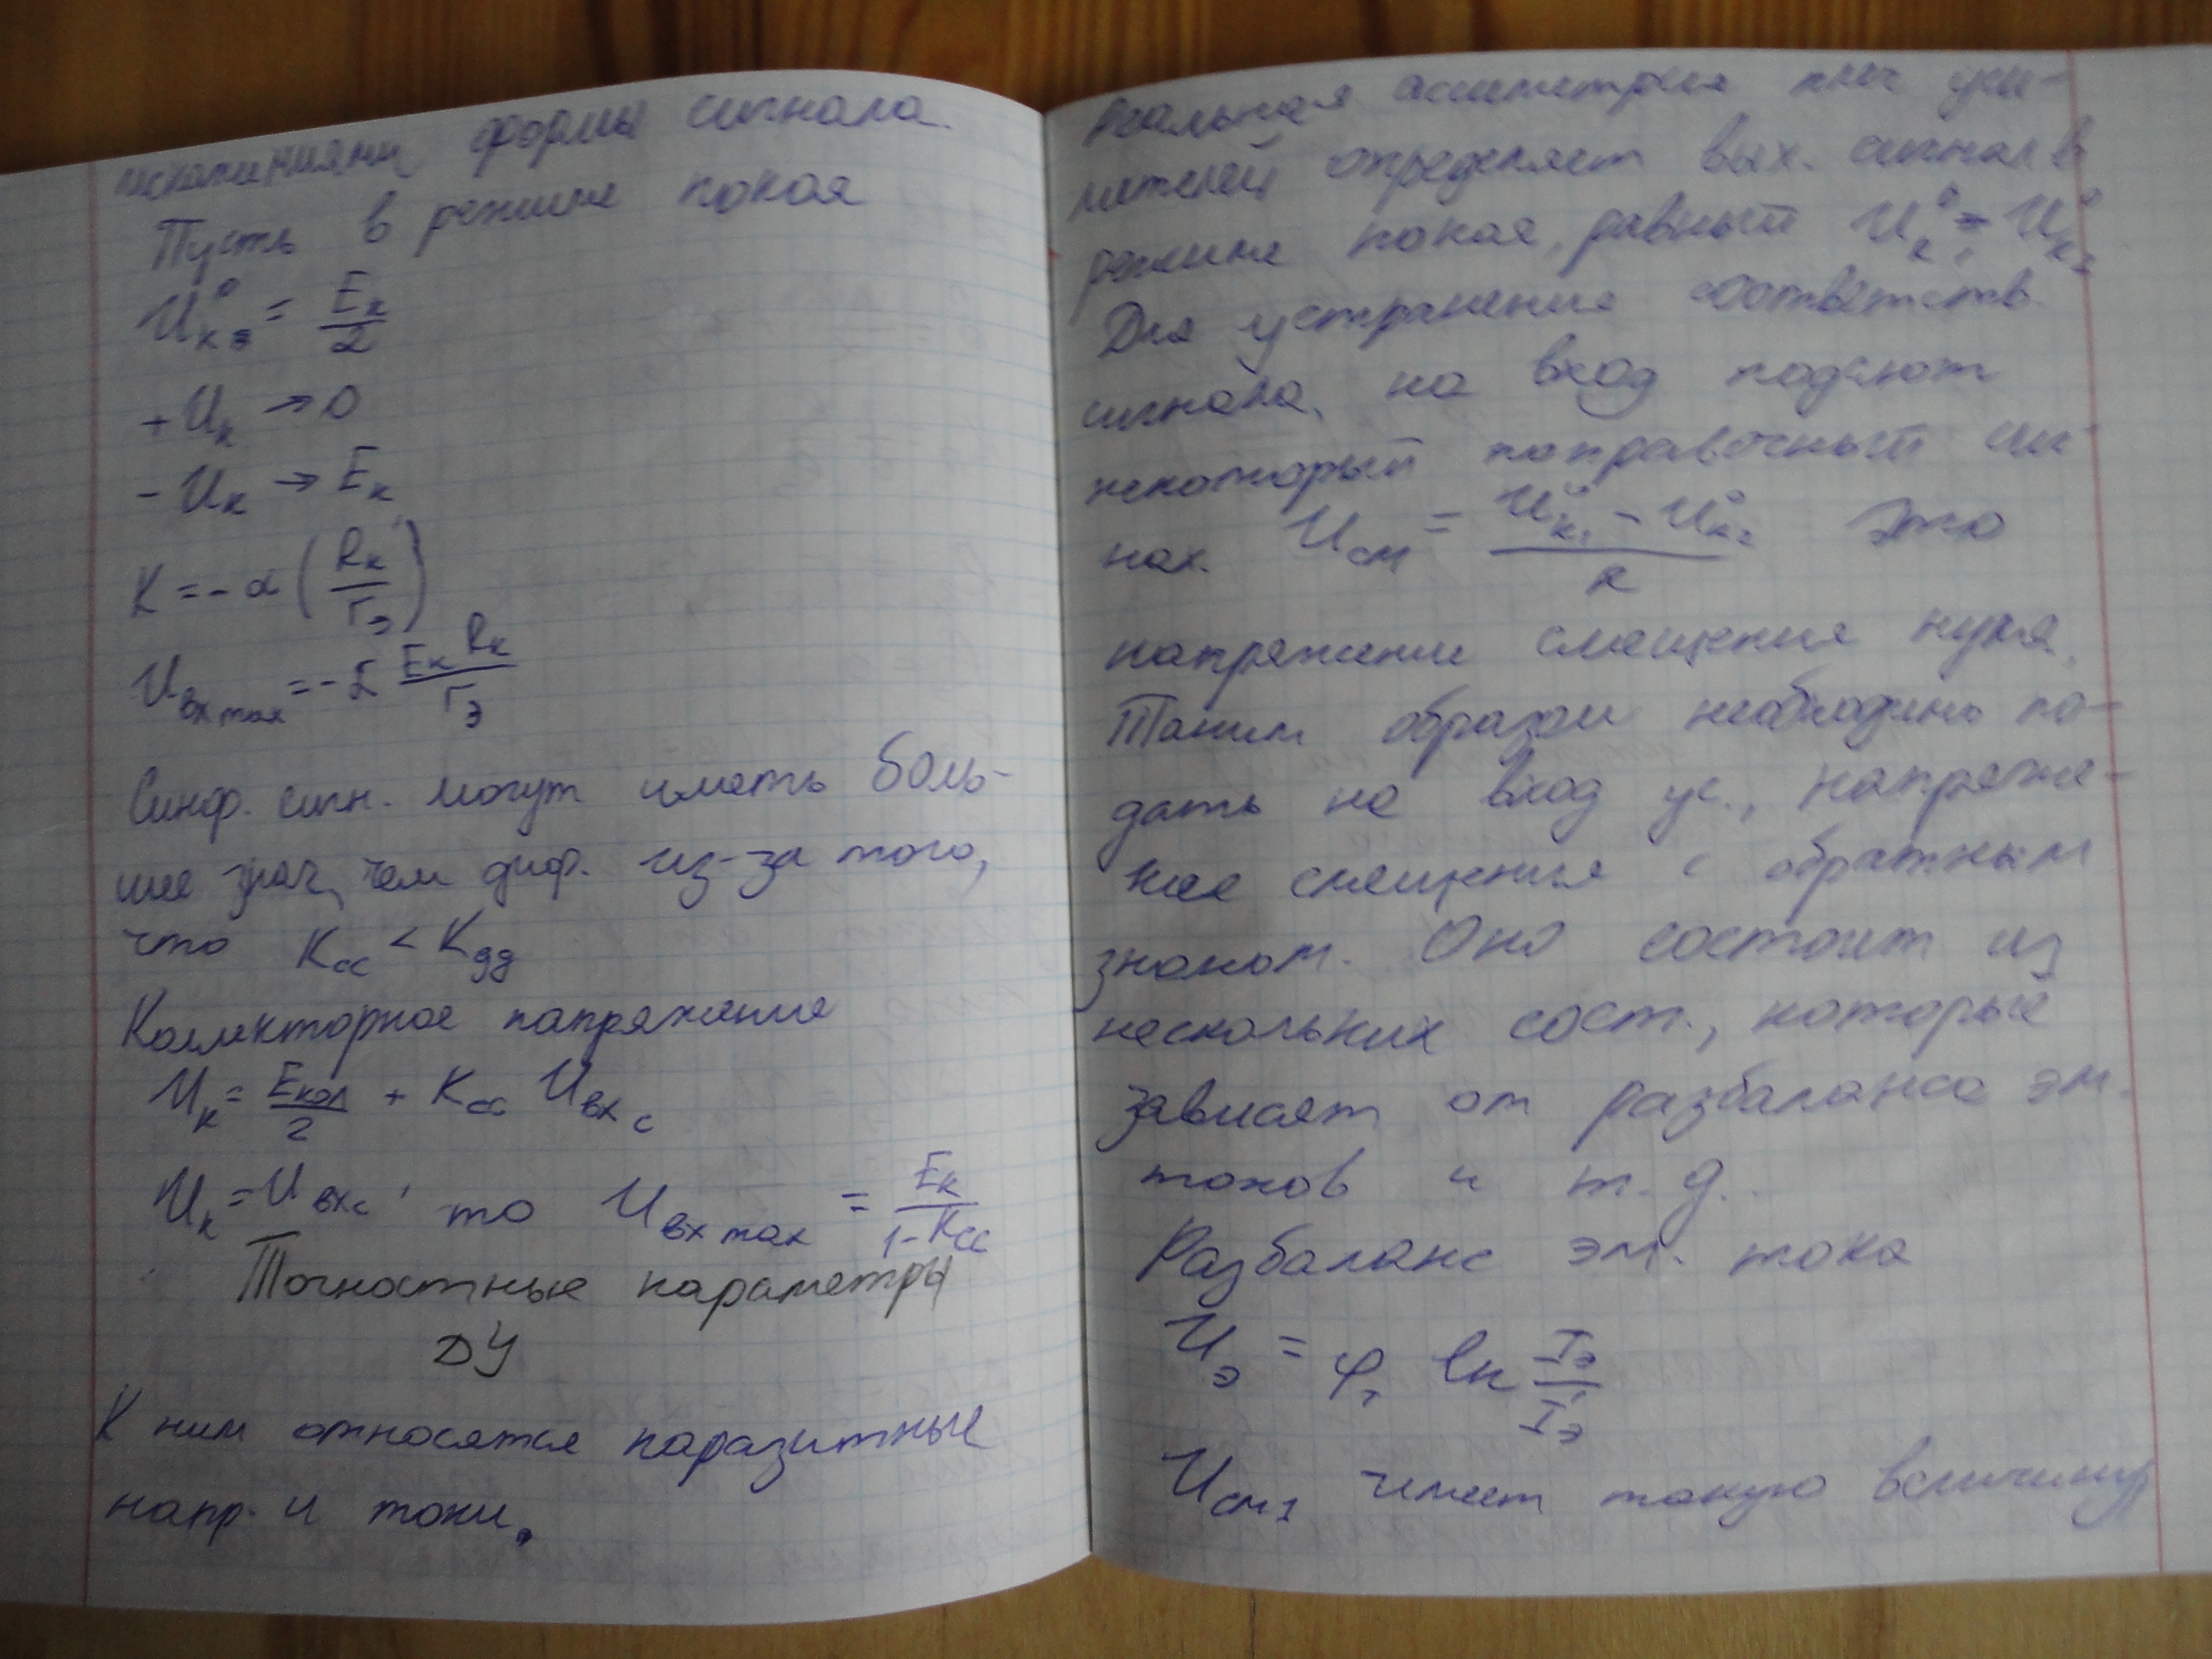 искажениями формы сигнала.
Пусть в режиме покоя
U⁰кэ = Eк/2
+Uк → 0
-Uк → Eк
K = -α (Rк/rэ)
Uвх max = - Eк Rк/rэ
Синф. сигн. могут иметь боль-
шие знач, чем диф. из-за того,
что Kсс < Kдд
Коллекторное напряжение
Uк = Eкол/2 + Kсс Uвх с
Uк = Uвхс, то Uвх max = Eк/(1-Kсс)
Точностные параметры
ДУ
К ним относятся паразитные
напр. и токи.
Реальная ассиметрия плеч уси-
лителей определяет вых. сигнал в
режиме покоя, равный U⁰к₁ - U⁰к₂
Для устранения соответств.
сигнала, на вход подают
некоторый поправочный сиг-
нал. Uсм = (U⁰к₁ - U⁰к₂)/K это
напряжение смещения нуля.
Таким образом необходимо по-
дать на вход ус., напряже-
ние смещения с обратным
знаком. Оно состоит из
нескольких сост., которые
зависят от разбаланса эм.
токов и т.д..
Разбаланс эм. тока
Uэ = φт ln Iэ/I'э
Uсм1 имеет такую величину